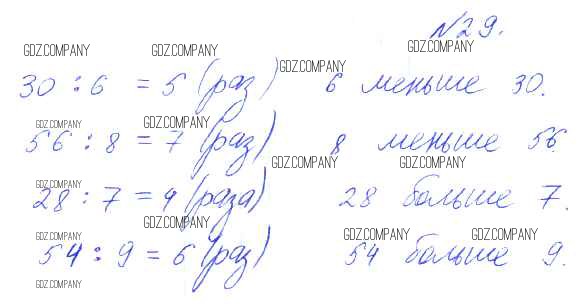 №29.
GDZ.COMPANY GDZ.COMPANY GDZ.COMPANY
GDZ.COMPANY
30 : 6 = 5 (раз) 6 меньше 30.
GDZ.COMPANY GDZ.COMPANY
56 : 8 = 7 (раз) 8 меньше 56.
GDZ.COMPANY GDZ.COMPANY
GDZ.COMPANY
28 : 7 = 4 (раза) 28 больше 7.
GDZ.COMPANY
GDZ.COMPANY GDZ.COMPANY GDZ.COMPANY
54 : 9 = 6 (раз) 54 больше 9.
GDZ.COMPANY